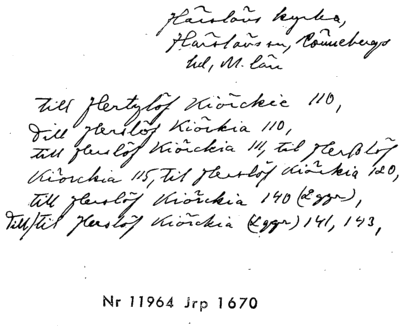 Härslövs kyrka,
Härslövs sn, Rönnebergs
hd, M. län
till Hertzlöf Kiörckie 110,
Dill Herslöf Kiörkia 110,
till Herslöf Kiörkia 111, til Herßlöf
Kiörckia 115, til Herslöf Kiörkia 120,
till Herslöf Kiörckia 140 (2 ggr),
Till/til Herslöf Kiörckia (2 ggr) 141, 143,
Nr 11964 Jrp 1670